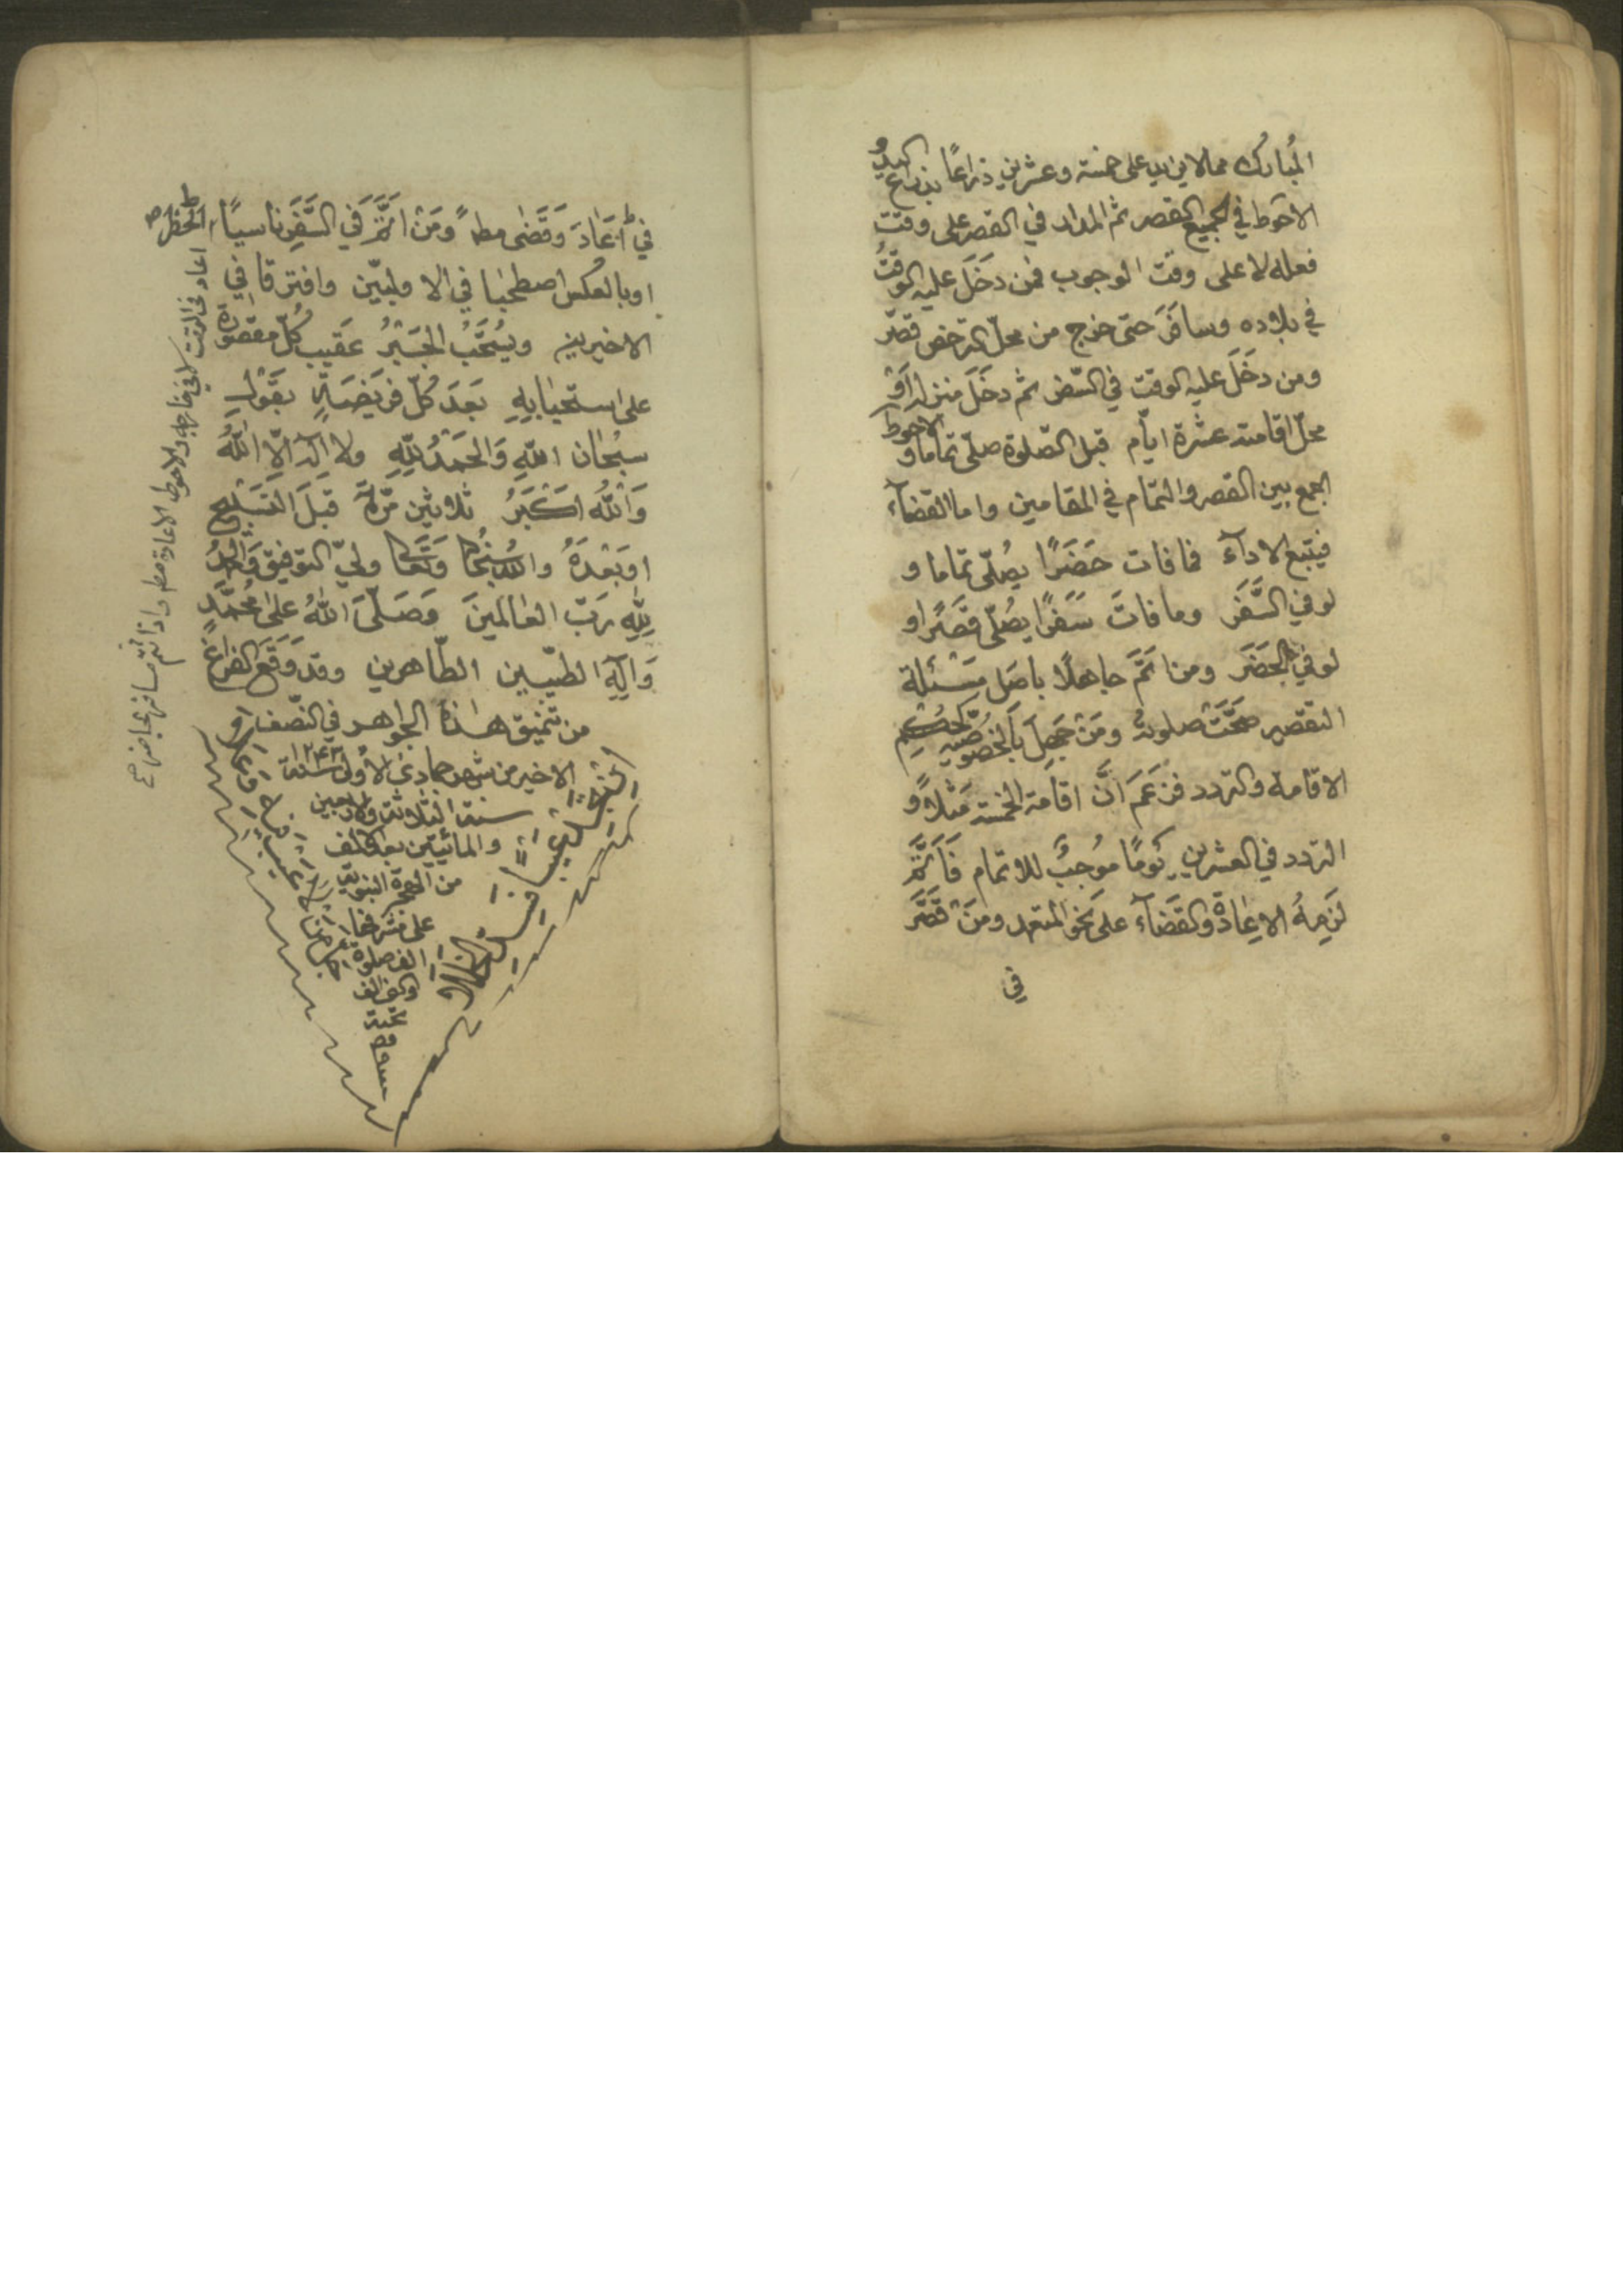 المبارك مما لا يزيد على خمسة وعشرين ذراعا بذراع اليد و
الاحوط في الجميع القصر ثم المدار في القصر على وقت
فعله لا على وقت الوجوب فمن دَخَلَ عليه الوقتُ
في بلاده وسافَرَ حتى خرج من محلّ الترخص قصّر
ومن دخَلَ عليه الوقت في السّفر ثم دخَلَ منزله اَوْ
محلّ اقامته عشرة ايّام قبل الصّلوة صلّى تماما و الاحوط
الجمع بين القصر والتمام في المقامين واما القضآء
فيتبع الادآء فما فات حَضَرًا يصُلّى تماما و
لو في السَّفَر وما فاتَ سَفَرًا يُصلّى قَصًرا و
لو في الحَضَر ومن اَتَمَّ جاهلًا باصَل مَسْئلة
التقصير صَحَّتْ صلوته ومَنْ جَهِلَ بالخصُوصيّة كحُكمِ
الاقامة والتردد فزعَمَ انَّ اقامة الخمسة مَثلاً و
التردد في العشرين يَومًا موُجبٌ للاتمام فَاَتَمَّ
لَزِمهُ الاِعادةُ والقَضآء علَى نحو المتعمد ومَنْ قَصَّرَ
في
في اَعَادَ وَقَضىٰ مط ومَنْ اَتَمَّ في السَّفَر ناسيًا
او بالعكس اصطحبا في الاوليّين وافترقا في
الاخيرين ويسُتَحَّبُ الجَبْرُ عَقيب كُلّ مقصُورة
على استحبابه بَعدَ كُلّ فريَضَةٍ بقَوْل
سبُحٰان اللّهِ وَالحَمْدُ لِلّهِ ولا اِلٰهَ اِلّا اللّٰهُ
وَاللّٰهُ اَكْبَرُ ثلاثين مَرّةً قَبلَ التَسَبْيح
اوبَعْدَهُ والله سُبْحٰانه وَتَعَالى وليّ التوفيق وَالحمدُ
لِلّهِ رَبّ العٰالمينَ وَصَلّىَ اللّٰهُ علىٰ مُحمّدٍ
وَآلِهِ الطيّبين الطّاهرين وقَد وَقَعَ الفراغ
من تنميق هٰذه الجواهر في النّصف
الاخير من شهر جمادى الاُولىٰ سنة ١٢٤٣
سنة الثلاثة والاربعين
والمائتين بعد الالف
من الهجرة النبوية
على مشرفها
الف صلوة
والف الف
تحية
اعاد في الوقت لا في خارجه والاحوط الاعادة مط واذا ائتم مسافر بحاضر